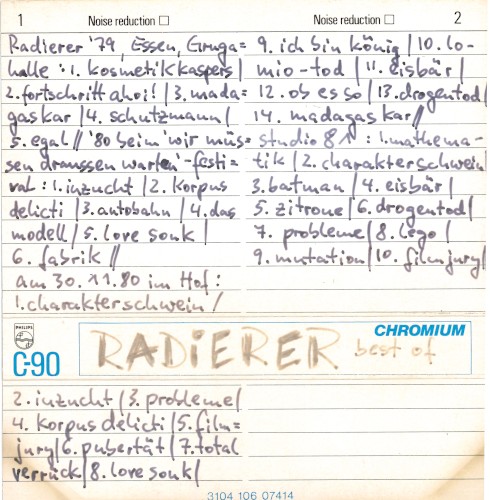 1
Noise reduction
Noise reduction
2
Radierer '79, Essen, Gruga=
halle : 1. kosmetikkaspers |
2. fortschritt ahoi! | 3. mada=
gaskar | 4. schutzmann |
5. egal // '80 beim 'wir müs=
sen draussen warten'-festi=
val : 1. inzucht | 2. korpus
delicti | 3. autobahn | 4. das
modell | 5. love sonk |
6. fabrik //
am 30. 11. 80 im Hof :
1. charakterschwein /
9. ich bin könig | 10. lo-
mio-tod | 11. eisbär |
12. ob es so | 13. drogentod |
14. madagaskar //
studio 81 : 1. mathema-
tik | 2. charakterschwein
3. batman | 4. eisbär |
5. zitrone | 6. drogentod |
7. probleme | 8. lego |
9. mutation | 10. filmjury |
PHILIPS
C-90
CHROMIUM
RADIERER best of
2. inzucht | 3. probleme |
4. korpus delicti | 5. film=
jury | 6. pubertät | 7. total
verrück | 8. love sonk |
3104 106 07414